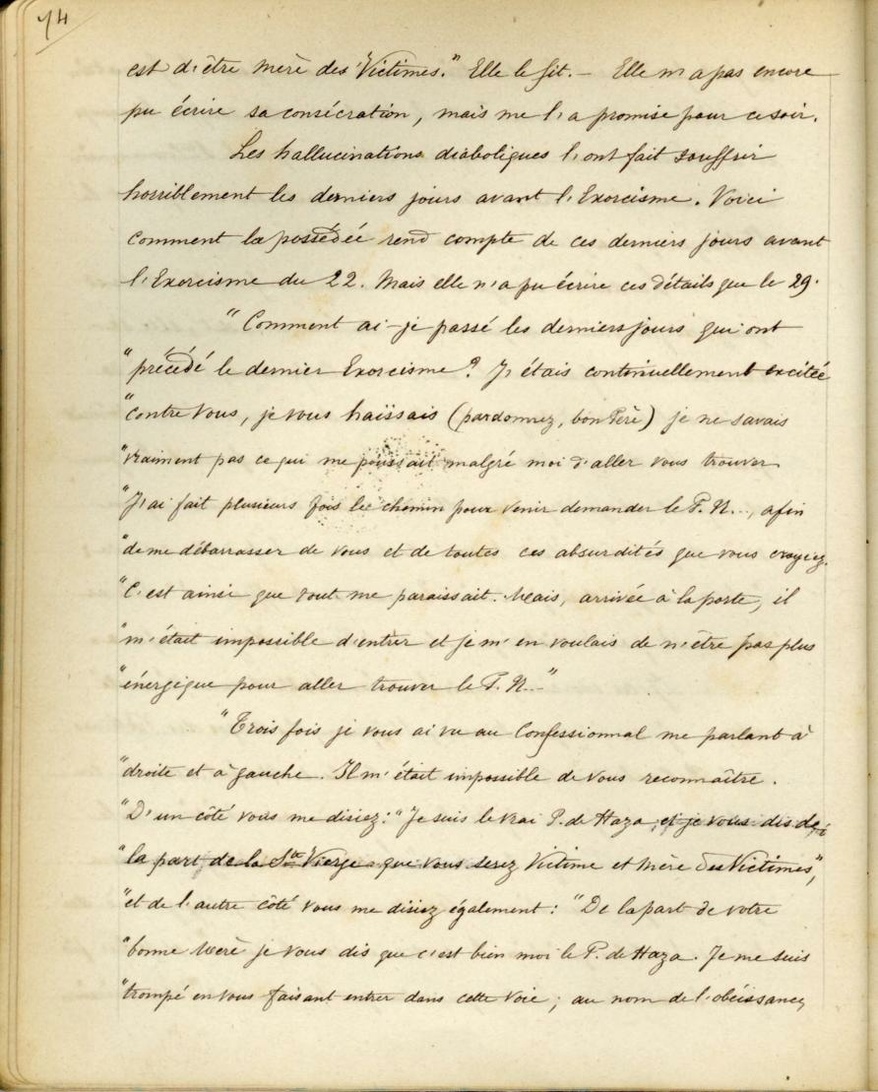 74
est d'être Mère des "Victimes." Elle le fit. – Elle n'a pas encore
pu écrire sa consécration, mais me l'a promise pour ce soir.
Les hallucinations diaboliques l'ont fait souffrir
horriblement les derniers jours avant l'Exorcisme. Voici
comment la possédée rend compte de ces derniers jours avant
l'Exorcisme du 22. Mais elle n'a pu écrire ces détails que le 29.
"Comment ai-je passé les derniers jours qui ont
"précédé le dernier Exorcisme? J'étais continuellement excitée
"contre Vous, je vous haïssais (pardonnez, bon Père) je ne savais
"vraiment pas ce qui me poussait malgré moi d'aller vous trouver
"J'ai fait plusieurs fois le chemin pour venir demander le P. N..., afin
"de me débarrasser de vous et de toutes ces absurdités que vous croyiez.
"C'est ainsi que tout me paraissait. Mais, arrivée à la porte, il
"m'était impossible d'entrer et je m'en voulais de n'être pas plus
"énergique pour aller trouver le P. N..."
"Trois fois je vous ai vu au Confessionnal me parlant à
"droite et à gauche. Il m'était impossible de vous reconnaître.
"D'un côté vous me disiez: "Je suis le vrai P. de Haza et je vous dis de
"la part de la Ste Vierge que vous serez Victime et Mère des Victimes",
"et de l'autre côté vous me disiez également: "De la part de votre
"bonne Mère je vous dis que c'est bien moi le P. de Haza. Je me suis
"trompé en vous faisant entrer dans cette voie; au nom de l'obéissance,